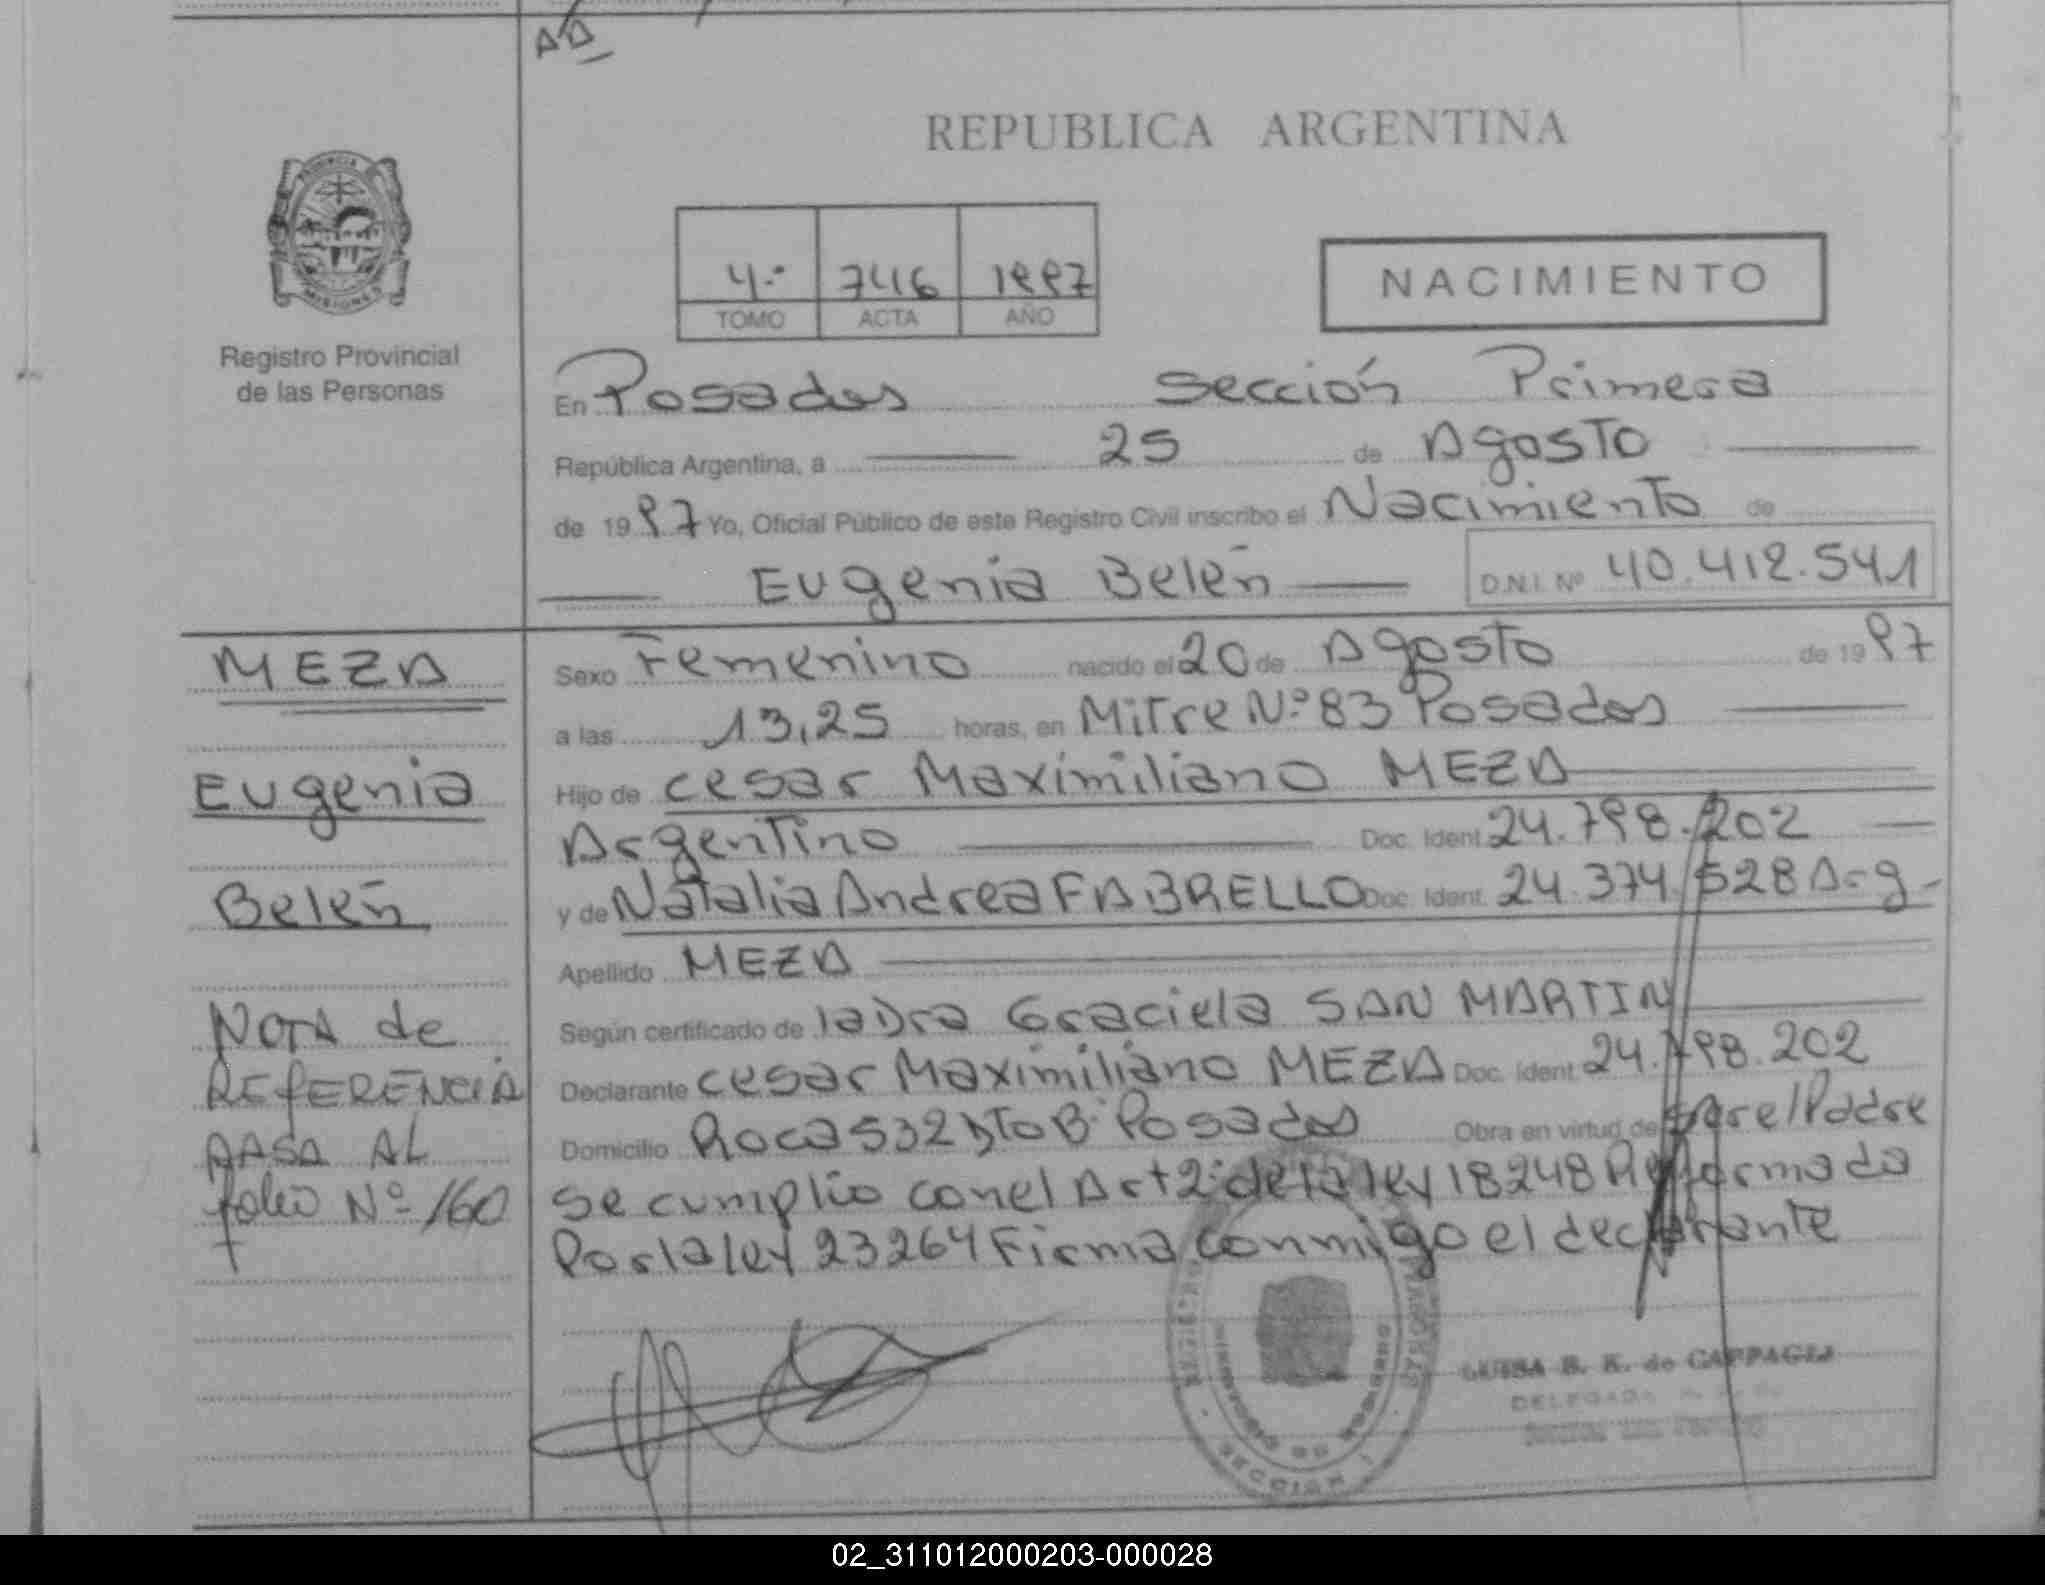 AD
REPUBLICA ARGENTINA
PROVINCIA
MISIONES
Registro Provincial
de las Personas
4.° 746 1997
TOMO ACTA AÑO
NACIMIENTO
En Posadas Sección Primera
República Argentina, a 25 de Agosto
de 1997 Yo, Oficial Público de este Registro Civil inscribo el Nacimiento de
Eugenia Belén D.N.I. Nº 40.412.541
MEZA
Eugenia
Belén
NOTA de
REFERENCIA
PASA AL
folio Nº 160
Sexo Femenino nacido el 20 de Agosto de 1997
a las 13,25 horas, en Mitre N.° 83 Posadas
Hijo de Cesar Maximiliano MEZA
Argentino Doc. Ident. 24.798.202
y de Natalia Andrea FABRELLO Doc. Ident. 24.374.528 Arg
Apellido MEZA
Según certificado de la Dra Graciela SAN MARTIN
Declarante Cesar Maximiliano MEZA Doc. Ident. 24.798.202
Domicilio Roca 532 DTo B. Posadas Obra en virtud de ser el Padre
Se cumplio con el Art 2: de la ley 18248 Reformada
Por la ley 23264 Firma conmigo el declarante
REGISTRO
SECCION
LUISA B. K. de
DELEGADA
02_311012000203-000028